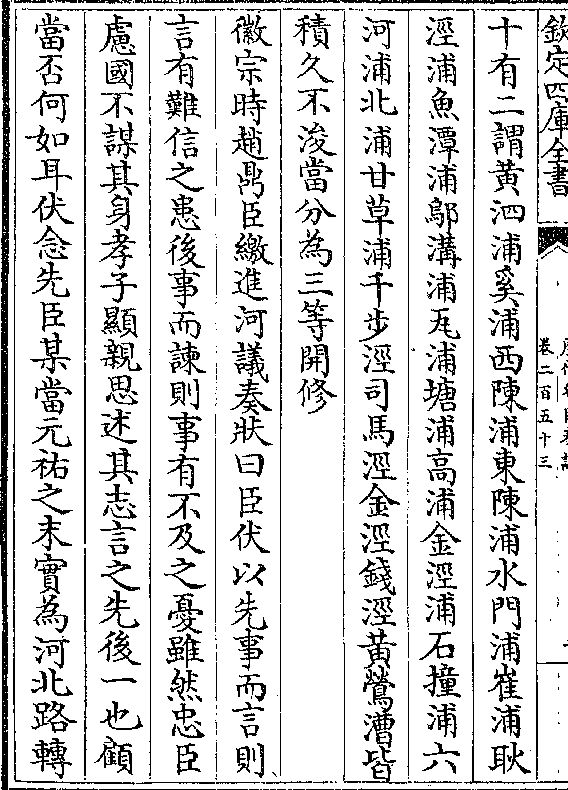 欽定四庫全書
卷二百五十三
十有二謂黃泗浦奚浦西陳浦東陳浦水門浦崔浦耿
涇浦魚潭浦鄔溝浦瓦浦塘浦高浦金涇浦石撞浦六
河浦北浦甘草浦千步涇司馬涇金涇錢涇黃鶯漕皆
積久不浚當分為三等開修
徽宗時趙鼎臣繳進河議奏狀曰臣伏以先事而言則
言有難信之患後事而諫則事有不及之憂雖然忠臣
慮國不謀其身孝子顯親思述其志言之先後一也顧
當否何如耳伏念先臣某當元祐之末實為河北路轉